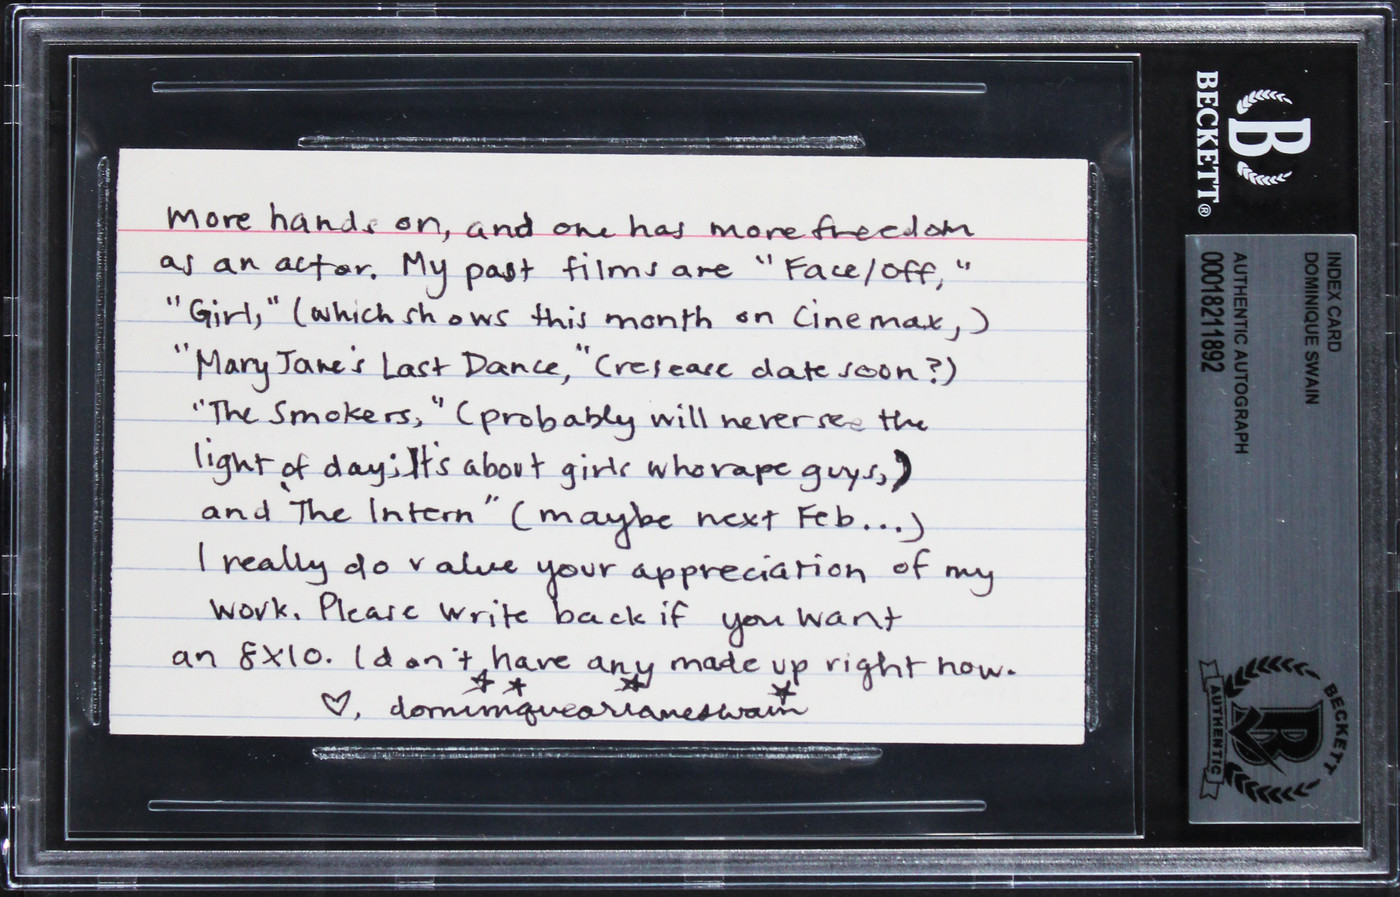 more hands on, and one has more freedom
as an actor. My past films are "Face/Off,"
"Girl," (which shows this month on Cinemax,)
"Mary Jane's Last Dance," (resease date soon?)
"The Smokers," (probably will never see the
light of day; It's about girls who rape guys,)
and "The Intern" (maybe next Feb...)
I really do value your appreciation of my
work. Please write back if you want
an 8x10. I don't have any made up right now.
♡, dominiquearianeswain
BECKETT®
B
INDEX CARD
DOMINIQUE SWAIN
AUTHENTIC AUTOGRAPH
00018211892
BECKETT
B
AUTHENTIC